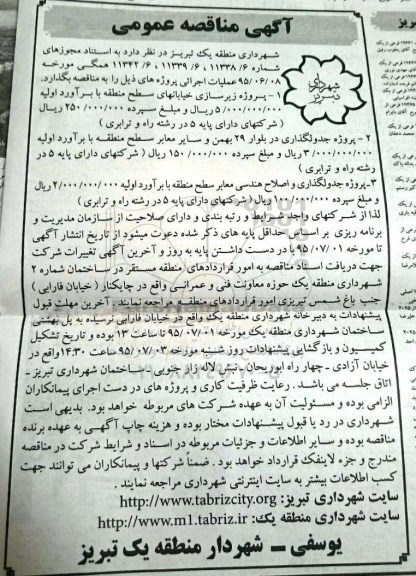 آگهی مناقصه عمومی
شهرداری منطقه یک تبریز در نظر دارد به استناد مجوزهای
شماره ۶/ ۱۱۳۳۸ ، ۶/ ۱۱۳۳۹ ، ۶/ ۱۱۳۴۲ همگی مورخه
۹۵/۰۶/۰۸ عملیات اجرائی پروژه های ذیل را به مناقصه بگذارد.
شهرداری تبریز
۱- پروژه زیرسازی خیابانهای سطح منطقه با برآورد اولیه
۵/۰۰۰/۰۰۰/۰۰۰ ریال و مبلغ سپرده ۲۵۰/۰۰۰/۰۰۰ ریال
( شرکتهای دارای پایه ۵ در رشته راه و ترابری )
۲- پروژه جدولگذاری در بلوار ۲۹ بهمن و سایر معابر سطح منطقه با برآورد اولیه
۳/۰۰۰/۰۰۰/۰۰۰ ریال و مبلغ سپرده ۱۵۰/۰۰۰/۰۰۰ ریال ( شرکتهای دارای پایه ۵ در
رشته راه و ترابری )
۳- پروژه جدولگذاری و اصلاح هندسی معابر سطح منطقه با برآورد اولیه ۲/۰۰۰/۰۰۰/۰۰۰ ریال
و مبلغ سپرده ۱۰۰/۰۰۰/۰۰۰ ریال ( شرکتهای دارای پایه ۵ در رشته راه و ترابری )
لذا از شرکتهای واجد شرایط و رتبه بندی و دارای صلاحیت از سازمان مدیریت و
برنامه ریزی بر اساس حداقل پایه های ذکر شده دعوت میشود از تاریخ انتشار آگهی
تا مورخه ۹۵/۰۷/۰۱ با در دست داشتن پایه به روز و آخرین آگهی تغییرات شرکت
جهت دریافت اسناد مناقصه به امور قراردادهای منطقه مستقر در ساختمان شماره ۲
شهرداری منطقه یک حوزه معاونت فنی و عمرانی واقع در چایکنار ( خیابان فارابی )
جنب باغ شمس تبریزی امور قراردادهای منطقه مراجعه نمایند . آخرین مهلت قبول
پیشنهادات به دبیرخانه شهرداری منطقه یک واقع در خیابان فارابی نرسیده به پل بهشتی
ساختمان شهرداری منطقه یک مورخه ۹۵/۰۷/۰۱ تا ساعت ۱۳ بوده و تاریخ تشکیل
کمیسیون و بازگشایی پیشنهادات روز شنبه مورخه ۹۵/۰۷/۰۳ ساعت ۱۴:۳۰ واقع در
خیابان آزادی - چهار راه ابوریحان - نبش لاله زار جنوبی - ساختمان شهرداری تبریز -
اتاق جلسه می باشد . رعایت ظرفیت کاری و پروژه های در دست اجرای پیمانکاران
الزامی بوده و مسئولیت آن به عهده شرکت های مربوطه خواهد بود. بدیهی است
شهرداری در رد یا قبول پیشنهادات مختار بوده و هزینه چاپ آگهی به عهده برنده
مناقصه بوده و سایر اطلاعات و جزئیات مربوطه در اسناد و شرایط شرکت در مناقصه
مندرج و جزء لاینفک قرارداد خواهد بود . ضمناً شرکتها و پیمانکاران می توانند جهت
کسب اطلاعات بیشتر به سایت اینترنتی شهرداری مراجعه نمایند .
سایت شهرداری تبریز: http://www.tabrizcity.org
سایت شهرداری منطقه یک: http://www.m1.tabriz.ir
یوسفی – شهردار منطقه یک تبریز